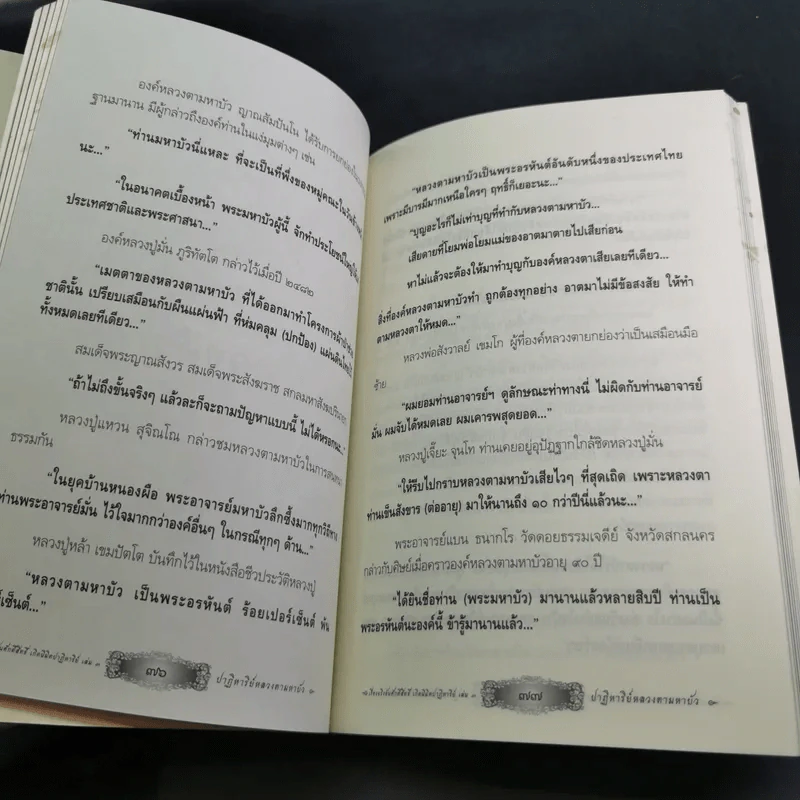 องค์หลวงตามหาบัว ญาณสัมปันโน ได้รับการยกย่อง
ฐานมานาน มีผู้กล่าวถึงองค์ท่านในแง่มุมต่างๆ เช่น
“ท่านมหาบัวนี่แหละ ที่จะเป็นที่พึ่งของหมู่คณะในวัน
นะ...”
“ในอนาคตเบื้องหน้า พระมหาบัวผู้นี้ จักทำประโยชน์
ประเทศชาติและพระศาสนา...”
องค์หลวงปู่มั่น ภูริทัตโต กล่าวไว้เมื่อปี ๒๔๘๒
“เมตตาของหลวงตามหาบัว ที่ได้ออกมาทำโครงการผ้าป่า
ชาตินั้น เปรียบเสมือนกับผืนแผ่นฟ้า ที่ห่มคลุม (ปกป้อง) แผ่นดิน
ทั้งหมดเลยทีเดียว...”
สมเด็จพระญาณสังวร สมเด็จพระสังฆราช สกลมหาสังฆปริณายก
“ถ้าไม่ถึงขั้นจริงๆ แล้วละก็จะถามปัญหาแบบนี้ ไม่ได้หรอกนะ..”
หลวงปู่แหวน สุจิณโณ กล่าวชมหลวงตามหาบัวในการสนทนา
ธรรมกัน
“ในยุคบ้านหนองผือ พระอาจารย์มหาบัวลึกซึ้งมากทุกวิถีทาง
ท่านพระอาจารย์มั่น ไว้ใจมากกว่าองค์อื่นๆ ในกรณีทุกๆ ด้าน...”
หลวงปู่หล้า เขมปัตโต บันทึกไว้ในหนังสือชีวประวัติหลวงปู่
“หลวงตามหาบัว เป็นพระอรหันต์ ร้อยเปอร์เซ็นต์ พัน
เซ็นต์...”
เล่ม ๓ ๗๖ ปาฏิหาริย์หลวงตามหาบัว
“หลวงตามหาบัวเป็นพระอรหันต์อันดับหนึ่งของประเทศไทย
เพราะมีบารมีมากเหนือใครๆ ฤทธิ์ก็เยอะนะ...”
“บุญอะไรก็ไม่เท่าบุญที่ทำกับหลวงตามหาบัว...
เสียดายที่โยมพ่อโยมแม่ของอาตมาตายไปเสียก่อน
หาไม่แล้วจะต้องให้มาทำบุญกับองค์หลวงตาเสียเลยทีเดียว...
สิ่งที่องค์หลวงตามหาบัวทำ ถูกต้องทุกอย่าง อาตมาไม่มีข้อสงสัย ให้ทำ
ตามหลวงตาให้หมด...”
หลวงพ่อสังวาลย์ เขมโก ผู้ที่องค์หลวงตายกย่องว่าเป็นเสมือนมือ
ซ้าย
“ผมยอมท่านอาจารย์ฯ ดูลักษณะท่าทางนี่ ไม่ผิดกับท่านอาจารย์
มั่น ผมจับได้หมดเลย ผมเคารพสุดยอด...”
หลวงปู่เจี๊ยะ จุนโท ท่านเคยอยู่อุปัฏฐากใกล้ชิดหลวงปู่มั่น
“ให้รีบไปกราบหลวงตามหาบัวเสียไวๆ ที่สุดเถิด เพราะหลวงตา
ท่านเข็นสังขาร (ต่ออายุ) มาให้นานถึง ๑๐ กว่าปีนี่แล้วนะ...”
พระอาจารย์แบน ธนากโร วัดดอยธรรมเจดีย์ จังหวัดสกลนคร
กล่าวกับศิษย์เมื่อคราวองค์หลวงตามหาบัวอายุ ๙๐ ปี
“ได้ยินชื่อท่าน (พระมหาบัว) มานานแล้วหลายสิบปี ท่านเป็น
พระอรหันต์นะองค์นี้ ข้ารู้มานานแล้ว...”
เล่ม ๓ ๗๗ ปาฏิหาริย์หลวงตามหาบัว